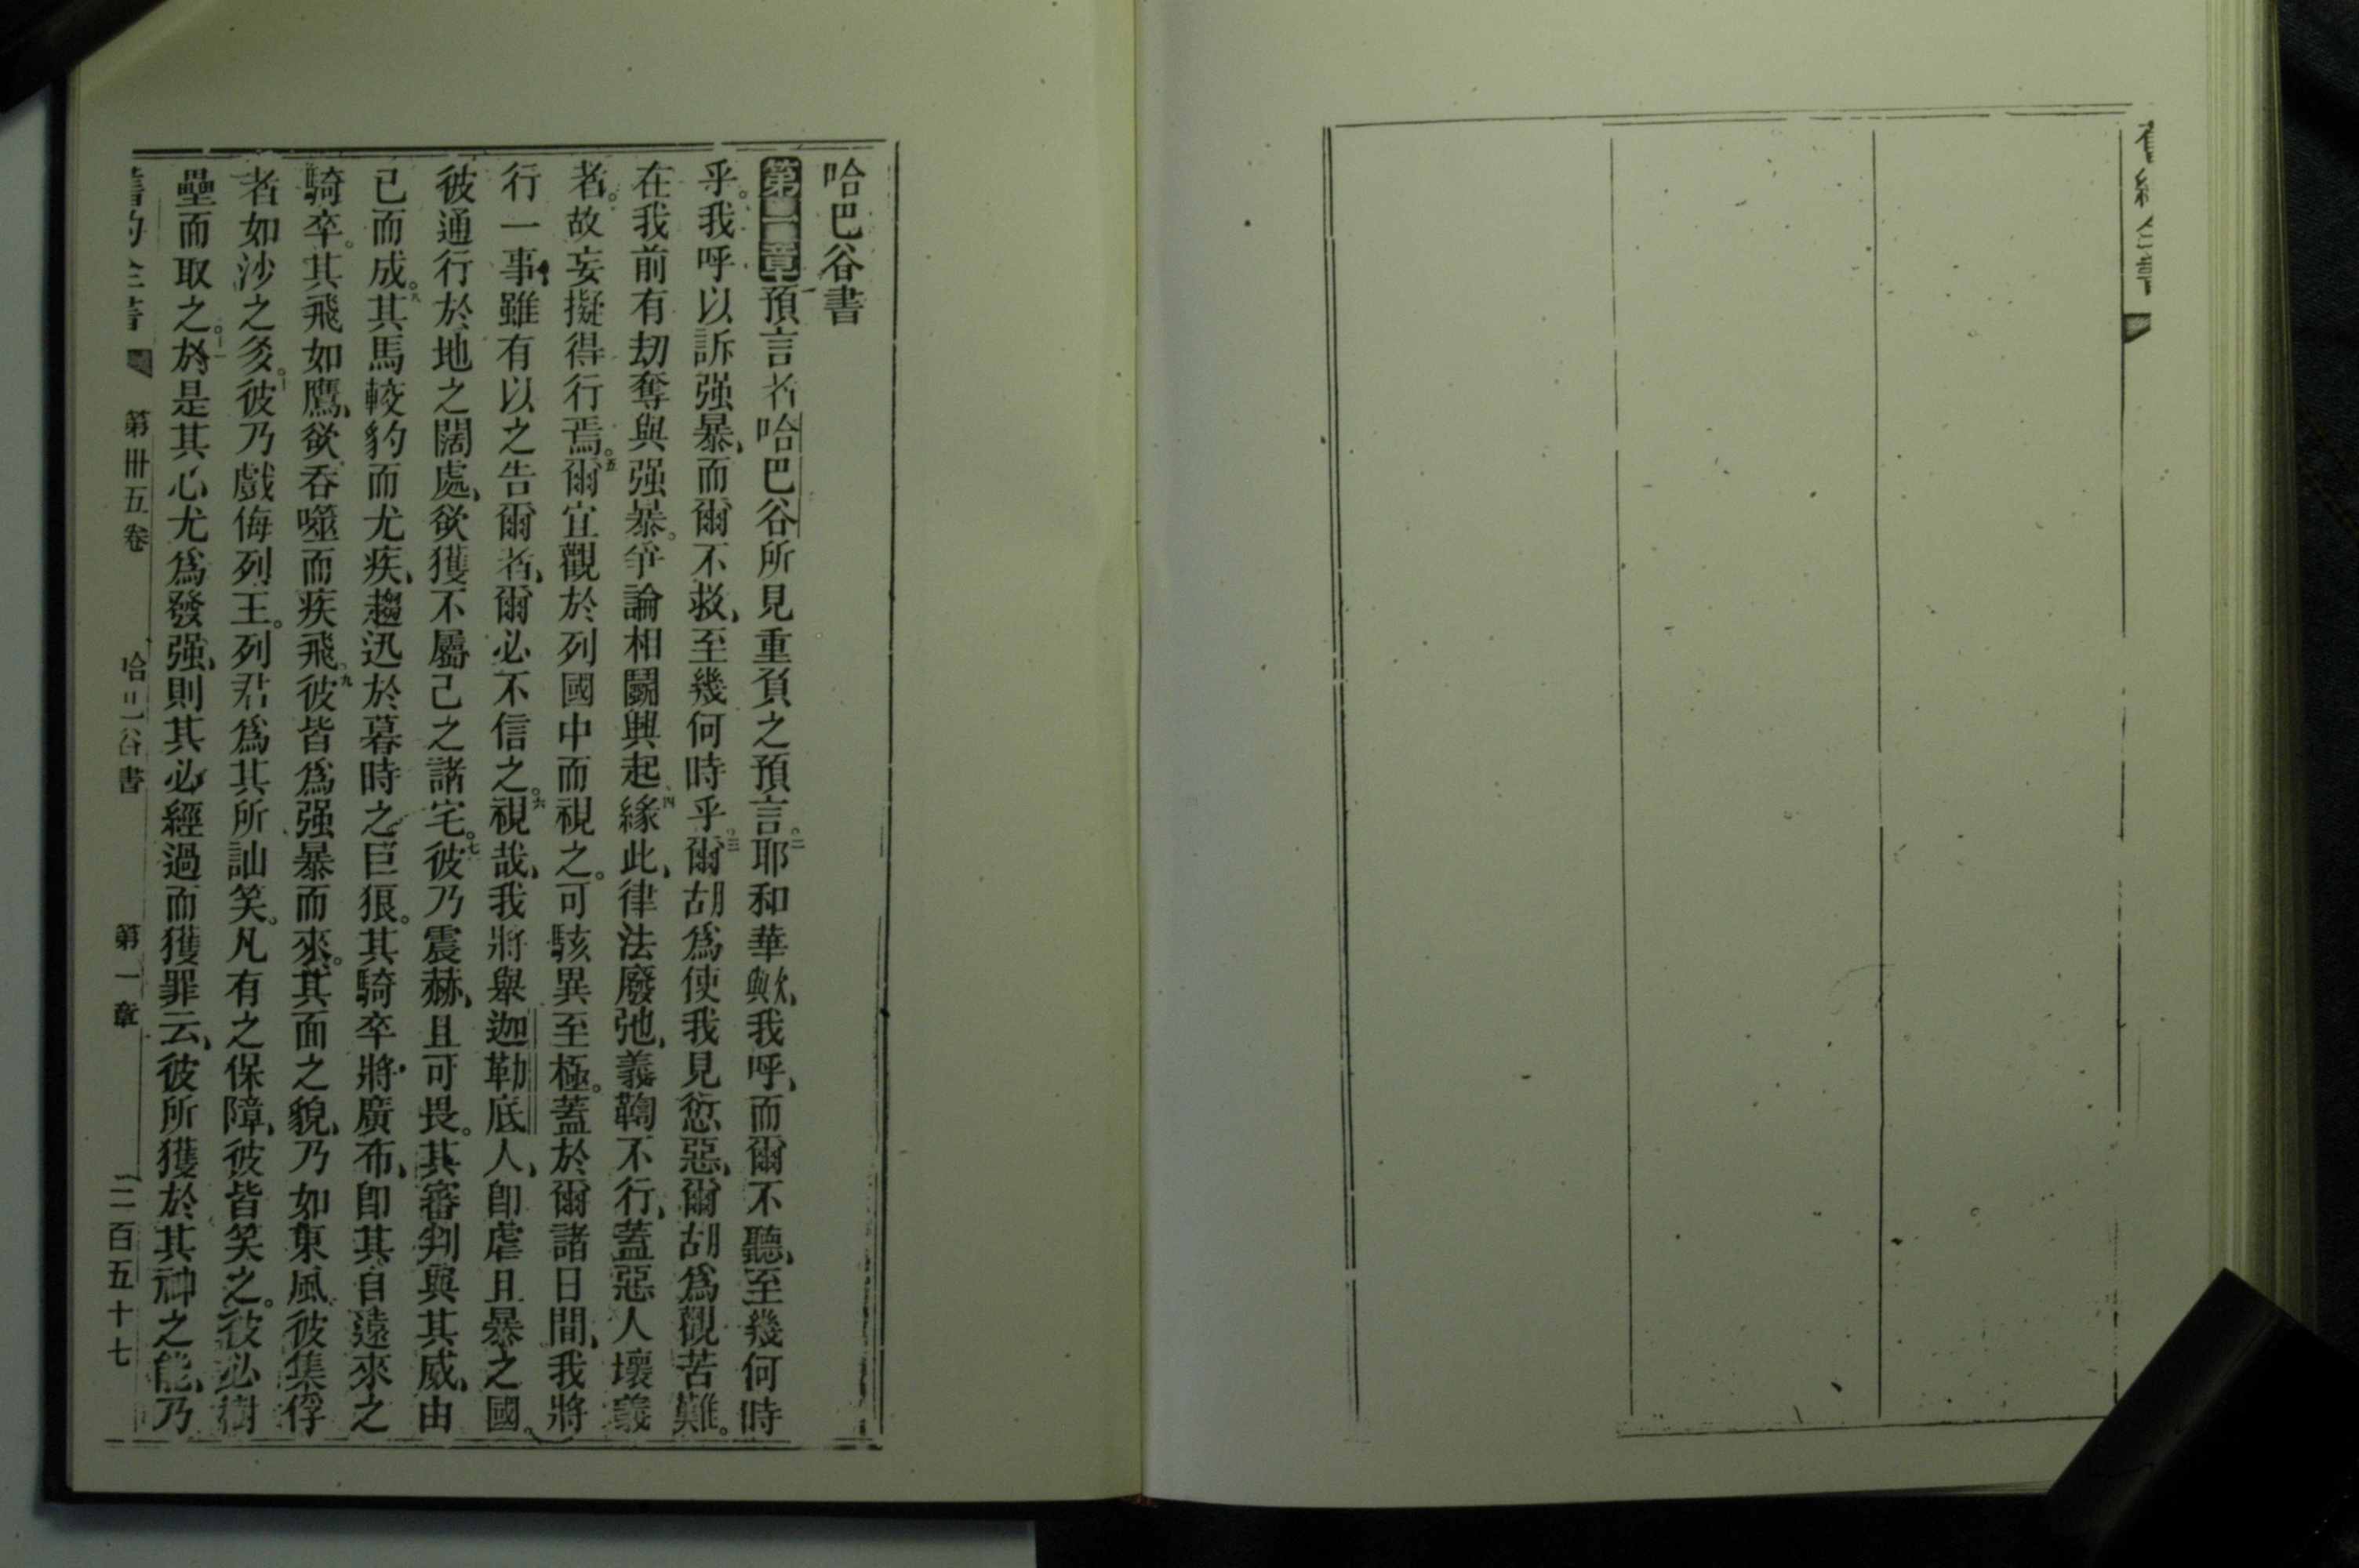 哈巴谷書
第一章預言者哈巴谷所見重負之預言。二耶和華歟、我呼、而爾不聽、至幾何時
乎。我呼以訴强暴、而爾不救、至幾何時乎。三爾胡爲使我見愆惡、爾胡爲觀苦難。
在我前有刧奪與强暴。爭論相鬭興起、四緣此、律法廢弛、義鞫不行、蓋惡人壞義
者。故妄擬得行焉。五爾宜觀於列國中而視之。可駭異至極。蓋於爾諸日間、我將
行一事、雖有以之告爾者、爾必不信之。六視哉、我將舉迦勒底人、卽虐且暴之國。
彼通行於地之闊處、欲獲不屬己之諸宅。七彼乃震赫、且可畏。其審判與其威、由
己而成。八其馬較豹而尤疾、趨迅於暮時之巨狼。其騎卒將廣布、卽其自遠來之
騎卒。其飛如鷹、欲吞噬而疾飛。九彼皆爲强暴而來。其面之貌、乃如東風、彼集俘
者如沙之多。十彼乃戲侮列王。列君爲其所訕笑。凡有之保障、彼皆笑之。彼必樹
壘而取之。十一於是其心尤爲發强、則其必經過而獲罪云、彼所獲於其神之能、乃
舊約全書 第卅五卷 哈巴谷書 第一章 二百五十七